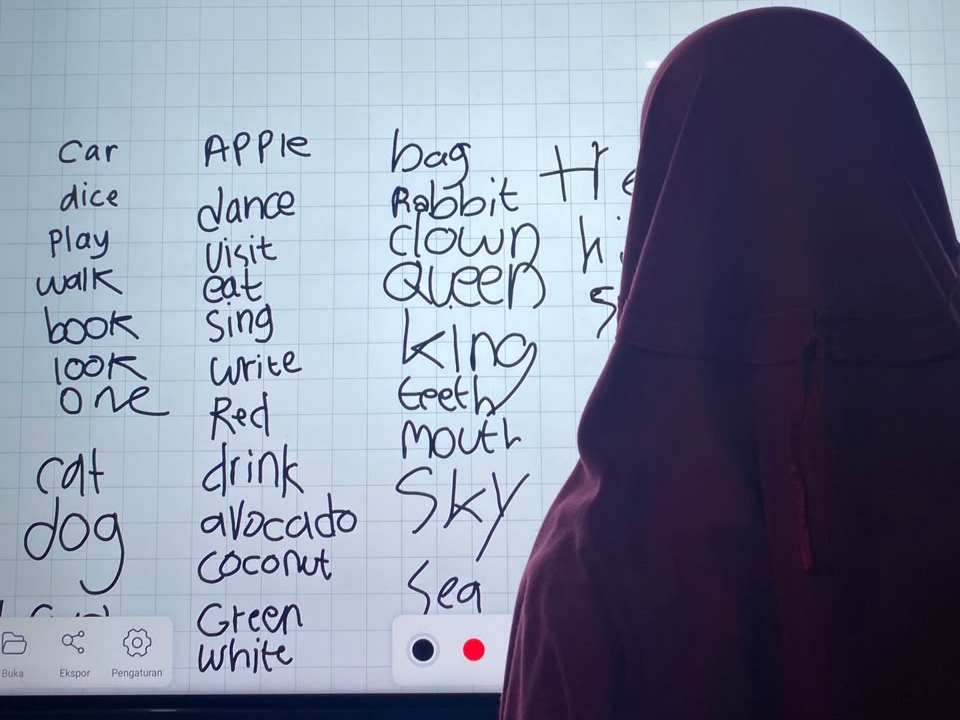 car
dice
play
walk
book
look
one
cat
dog
APPle
dance
visit
eat
sing
write
Red
drink
avocado
coconut
Green
white
bag
Rabbit
clown
Queen
king
teeth
mouth
Sky
Sea
Buka
Ekspor
Pengaturan